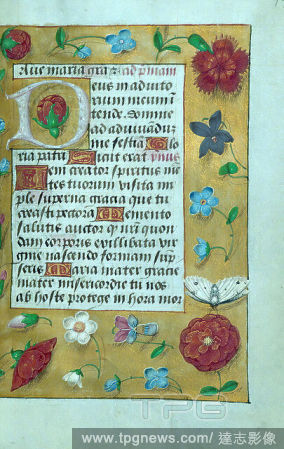 Aue maria gra ad pmam
Deus in adiuto
rium meum in
tende. Domine
ad adiuuandū
me festina Glo
ria patri Sicut erat
eni creator spiritus mē
tes tuorum visita im
ple superna gracia que tu
creasti pectora Memento
salutis auctor q nr̄i quon
dam corporis ex illibata vir
gine nascendo formam sum
pseris Maria mater gracie
mater misericordie tu nos
ab hoste protege in hora mor
TPG
www.tpgnews.com/達志影像